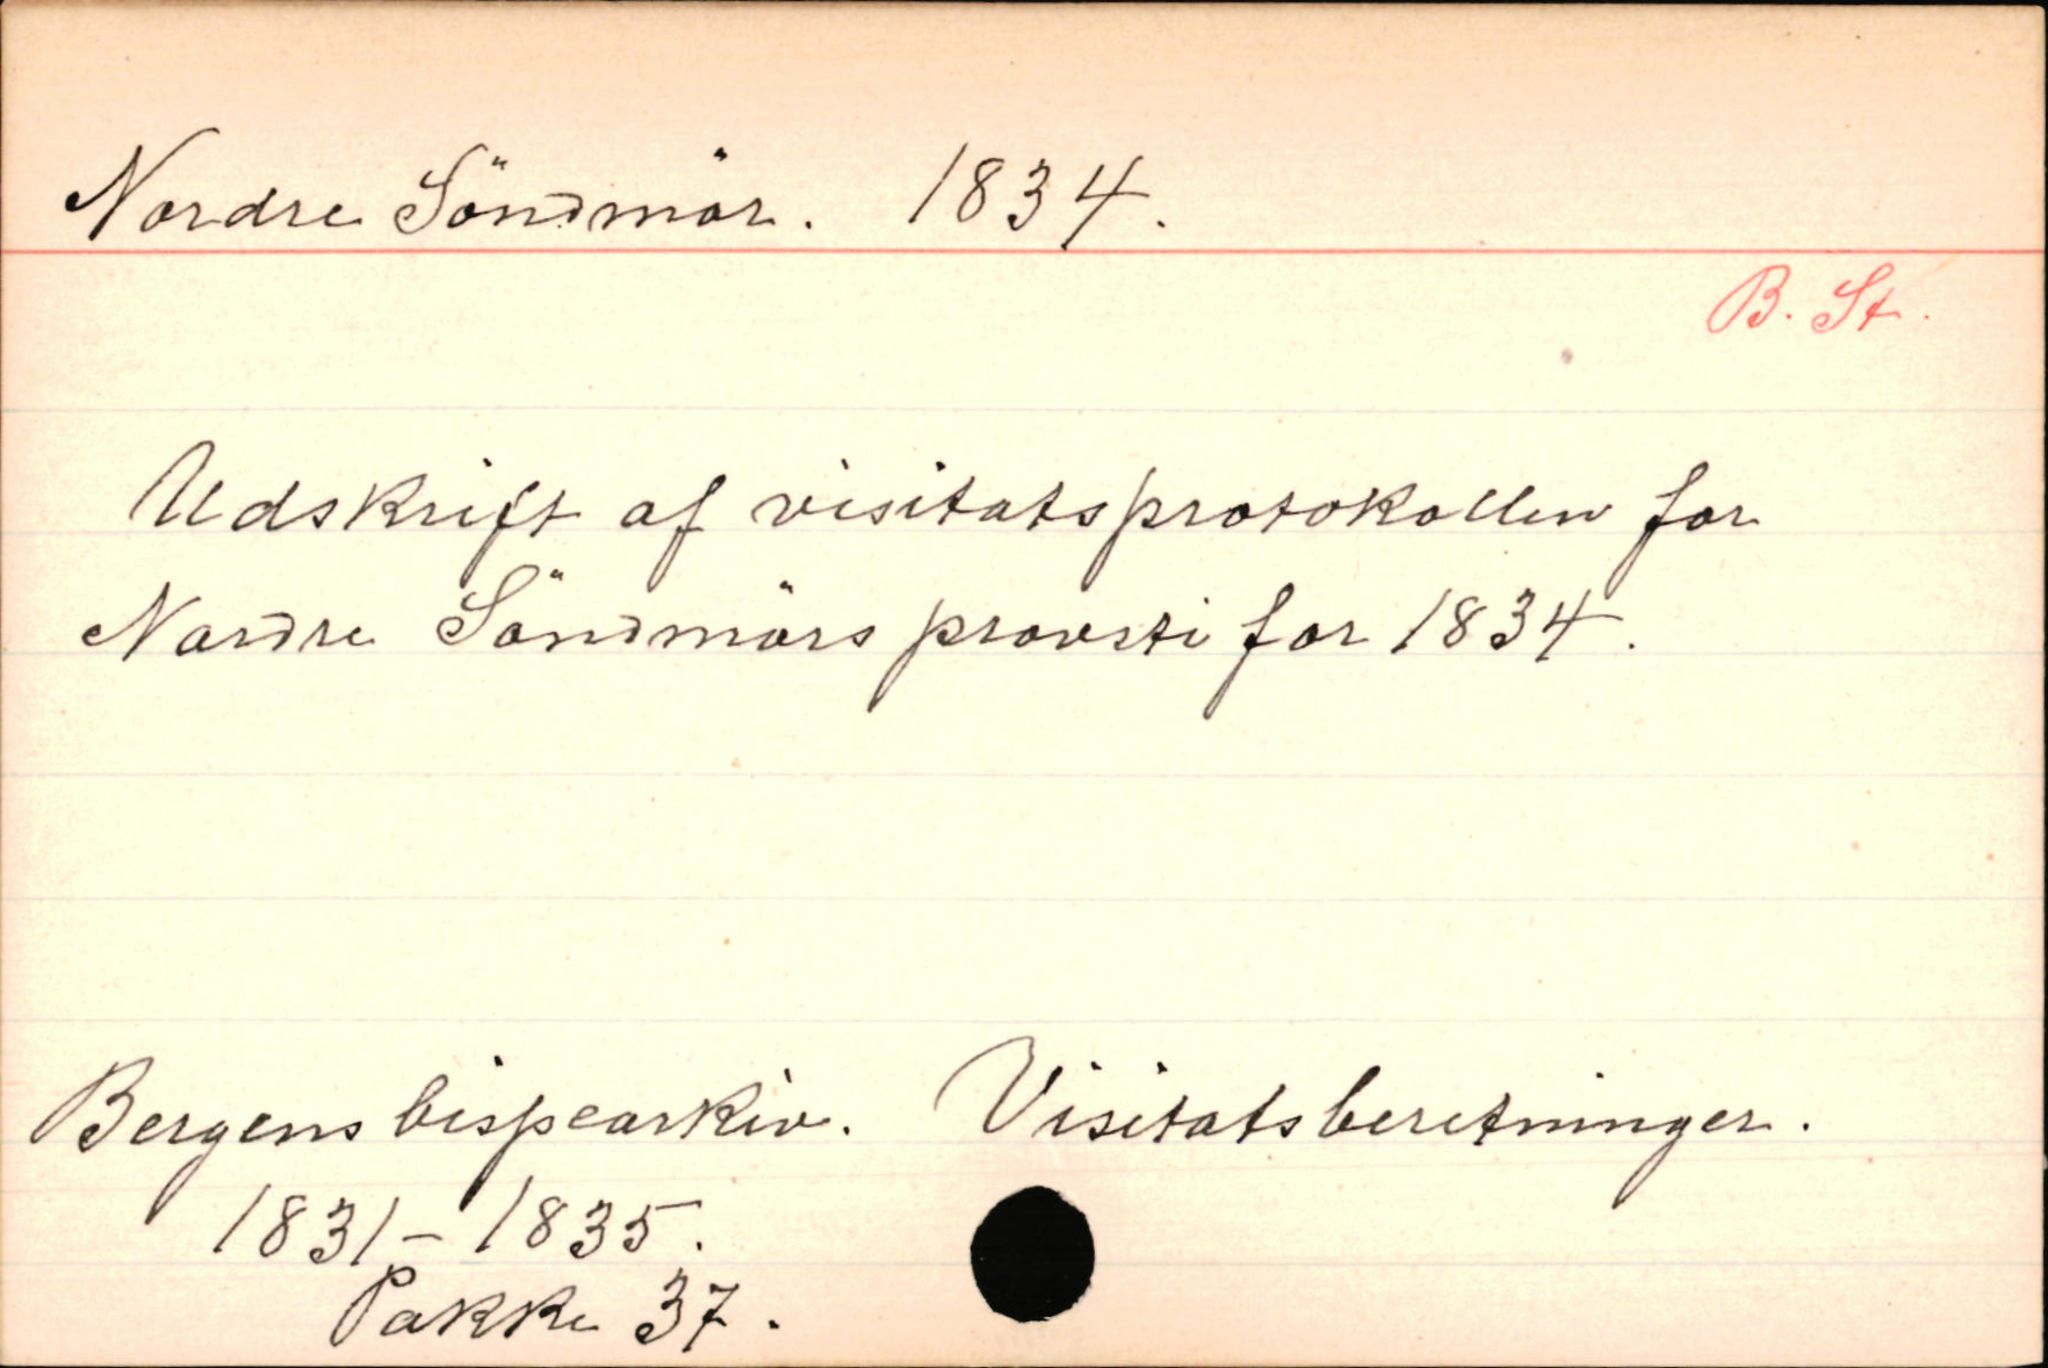 Nordre Söndmör. 1834.
B. St.
Udskrift af visitatsprotokollen for
Nordre Söndmörs provsti for 1834.
Bergens bispearkiv. Visitatsberetninger.
1831-1835.
Pakke 37.